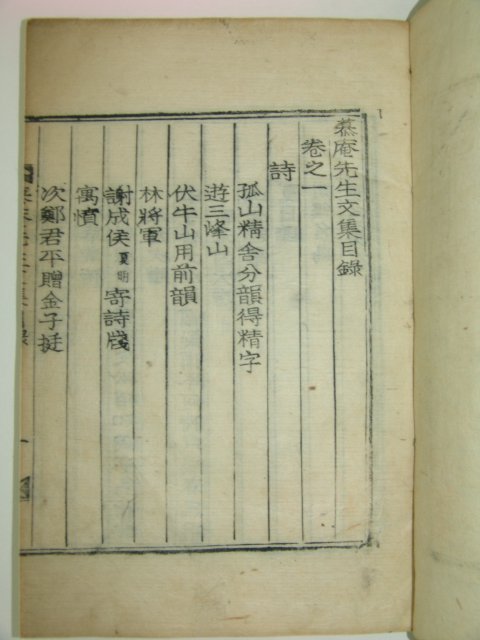 慕庵先生文集目錄
卷之一
詩
孤山精舍分韻得精字
遊三峰山
伏牛山用前韻
林將軍
謝成侯夏明寄詩牋
寓憤
次鄭君平贈金子挺